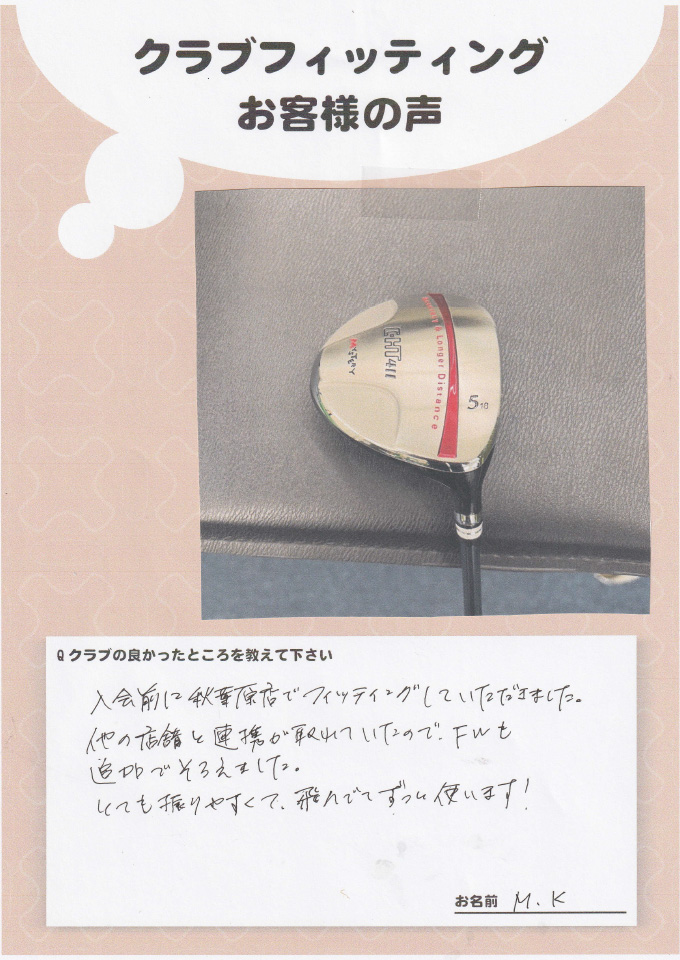 クラブフィッティング
お客様の声
Longer Distance
HT411
MYSTERY
5 18
Q クラブの良かったところを教えて下さい
入会前に秋葉原店でフィッティングしていただきました。
他の店舗と連携が取れていたので、FWも
追加でそろえました。
とても振りやすくて、飛んでてずっと使います！
お名前 M.K